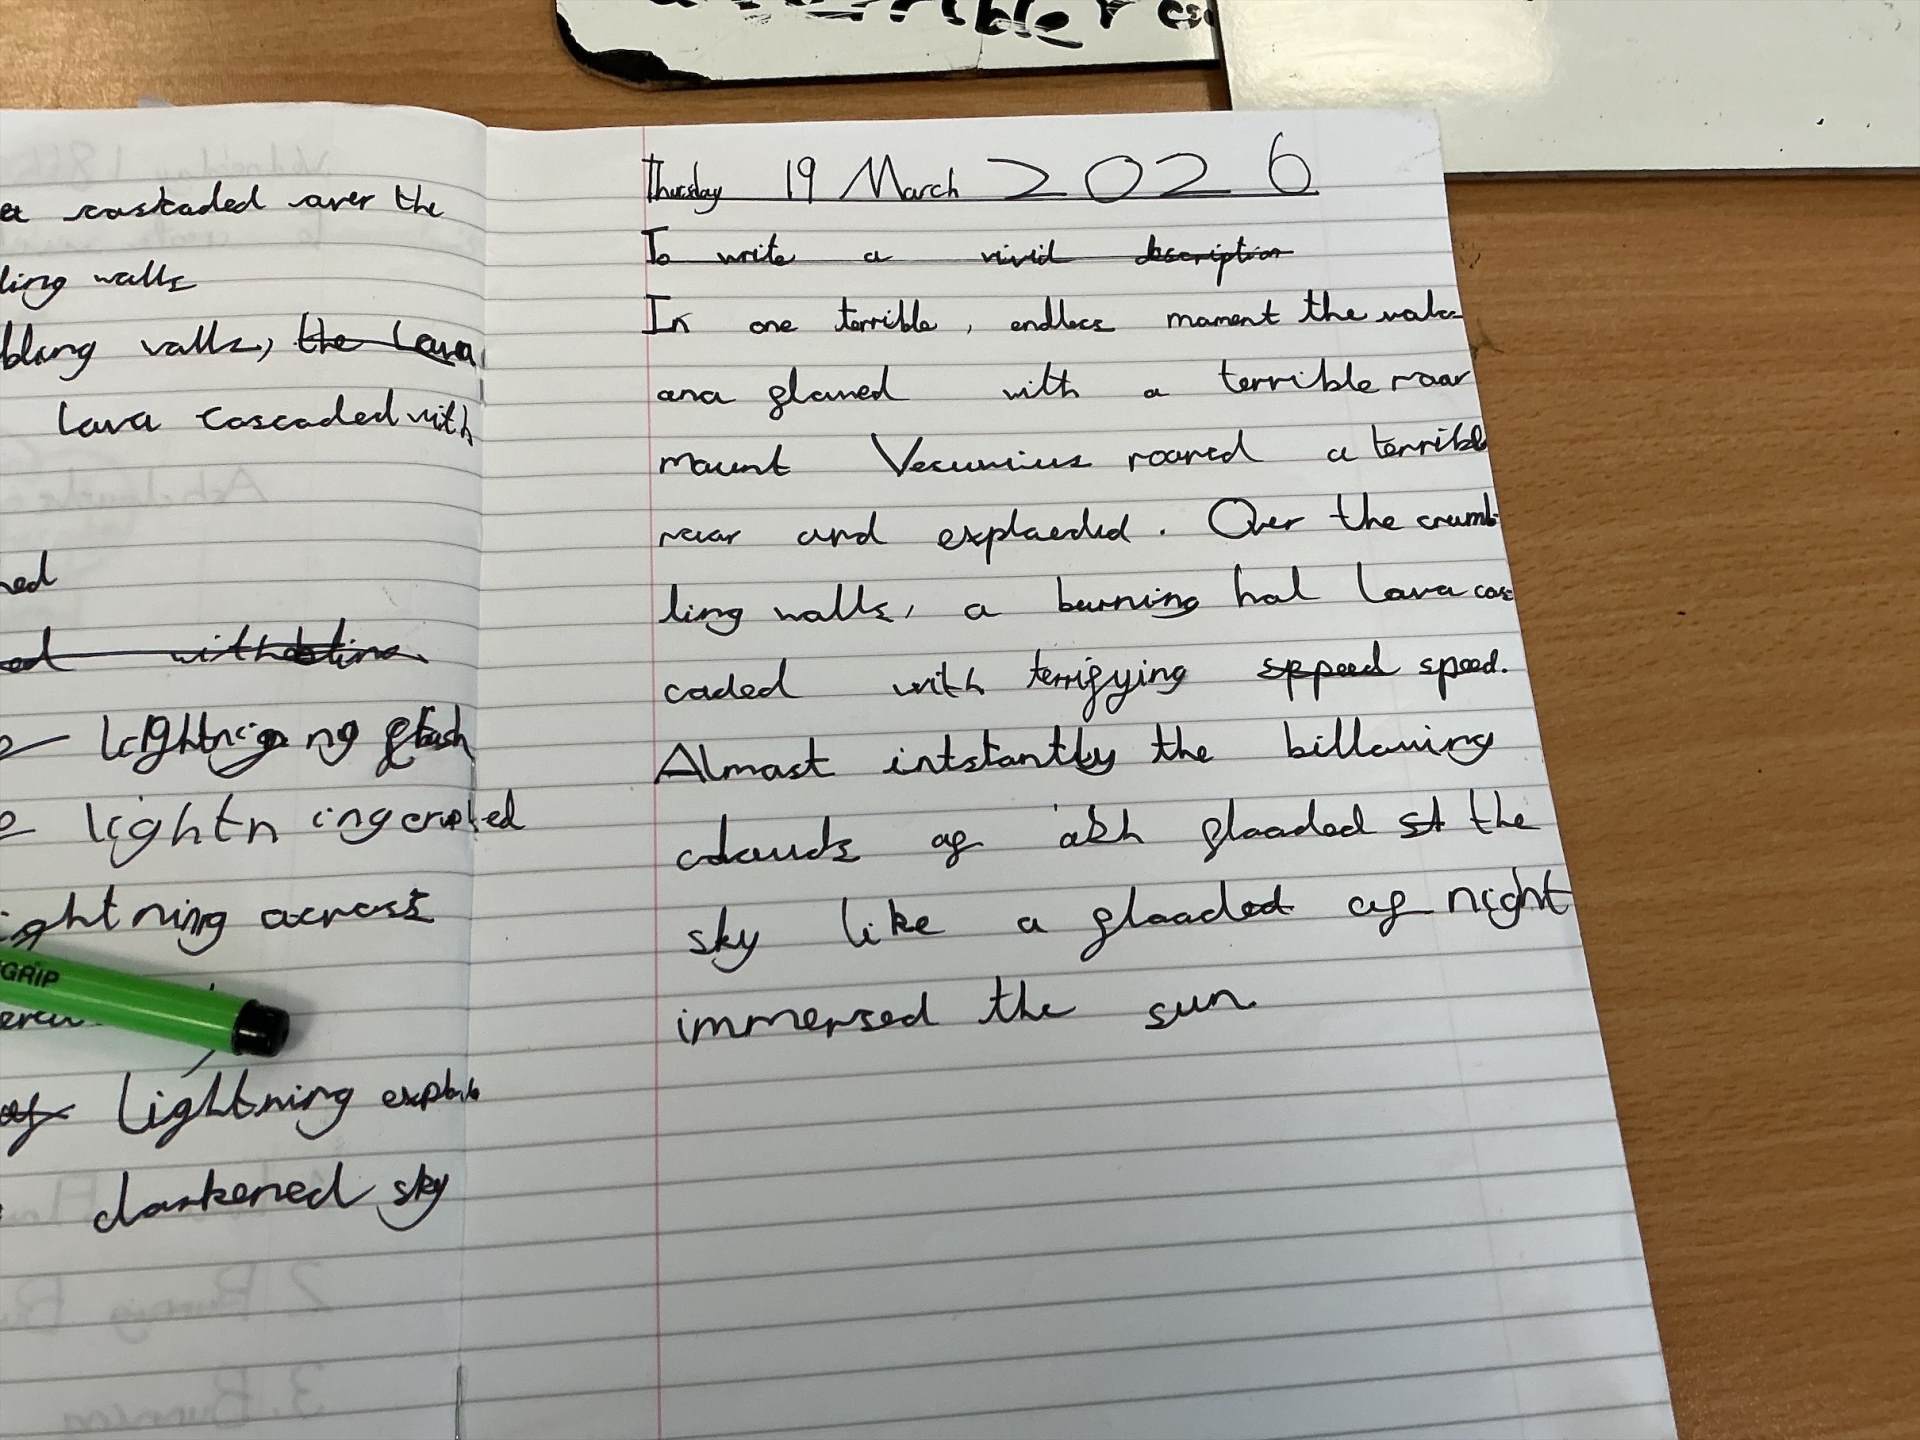 terrible
cascaded over the
ling walls
bling walls, the lava
lava cascaded with
ned
ed
lightning flash
lightn ing erupted
ightning across
GRIP
of lightning
darkened sky
Thursday 19 March 2026
To write a vivid description
In one terrible, endless moment the volc
ano glowed with a terrible roar
mount Vesuvius roared a terrible
roar and exploeded. Over the crumb-
ling walls, a burning hot lava cas
caded with terrifying sppeed speed.
Almost intstantly the billowing
clouds of ash flooded st the
sky like a flooded of night
immersed the sun.